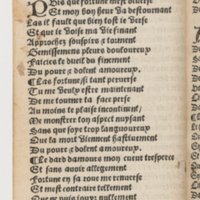 Puis que fortune mest diuerse
Et mon bon heur va destournant
Las il fault que bien tost ie verse
Et que ie voise ma vie finant
Approchez souspirs et tourment
Gemissemens pleurs douloureux
Faictes le dueil du finement
Du poure et dolent amoureux
Las fortune si tant peruerse
Tu me veulx estre maintenant
De me tourner ta face
Au moins te plaise incontinent
Me monstrer ton aspect
Sans que soye trop langoureux
Que ta mort viennent hastiuement
Du poure et dolent amoureux
Le dard damours mon cueur trespece
Et sans auoir allegement
Fortune en sa roue me renuerse
Et mest contraire tellement
Que ne puis iouyr nullement